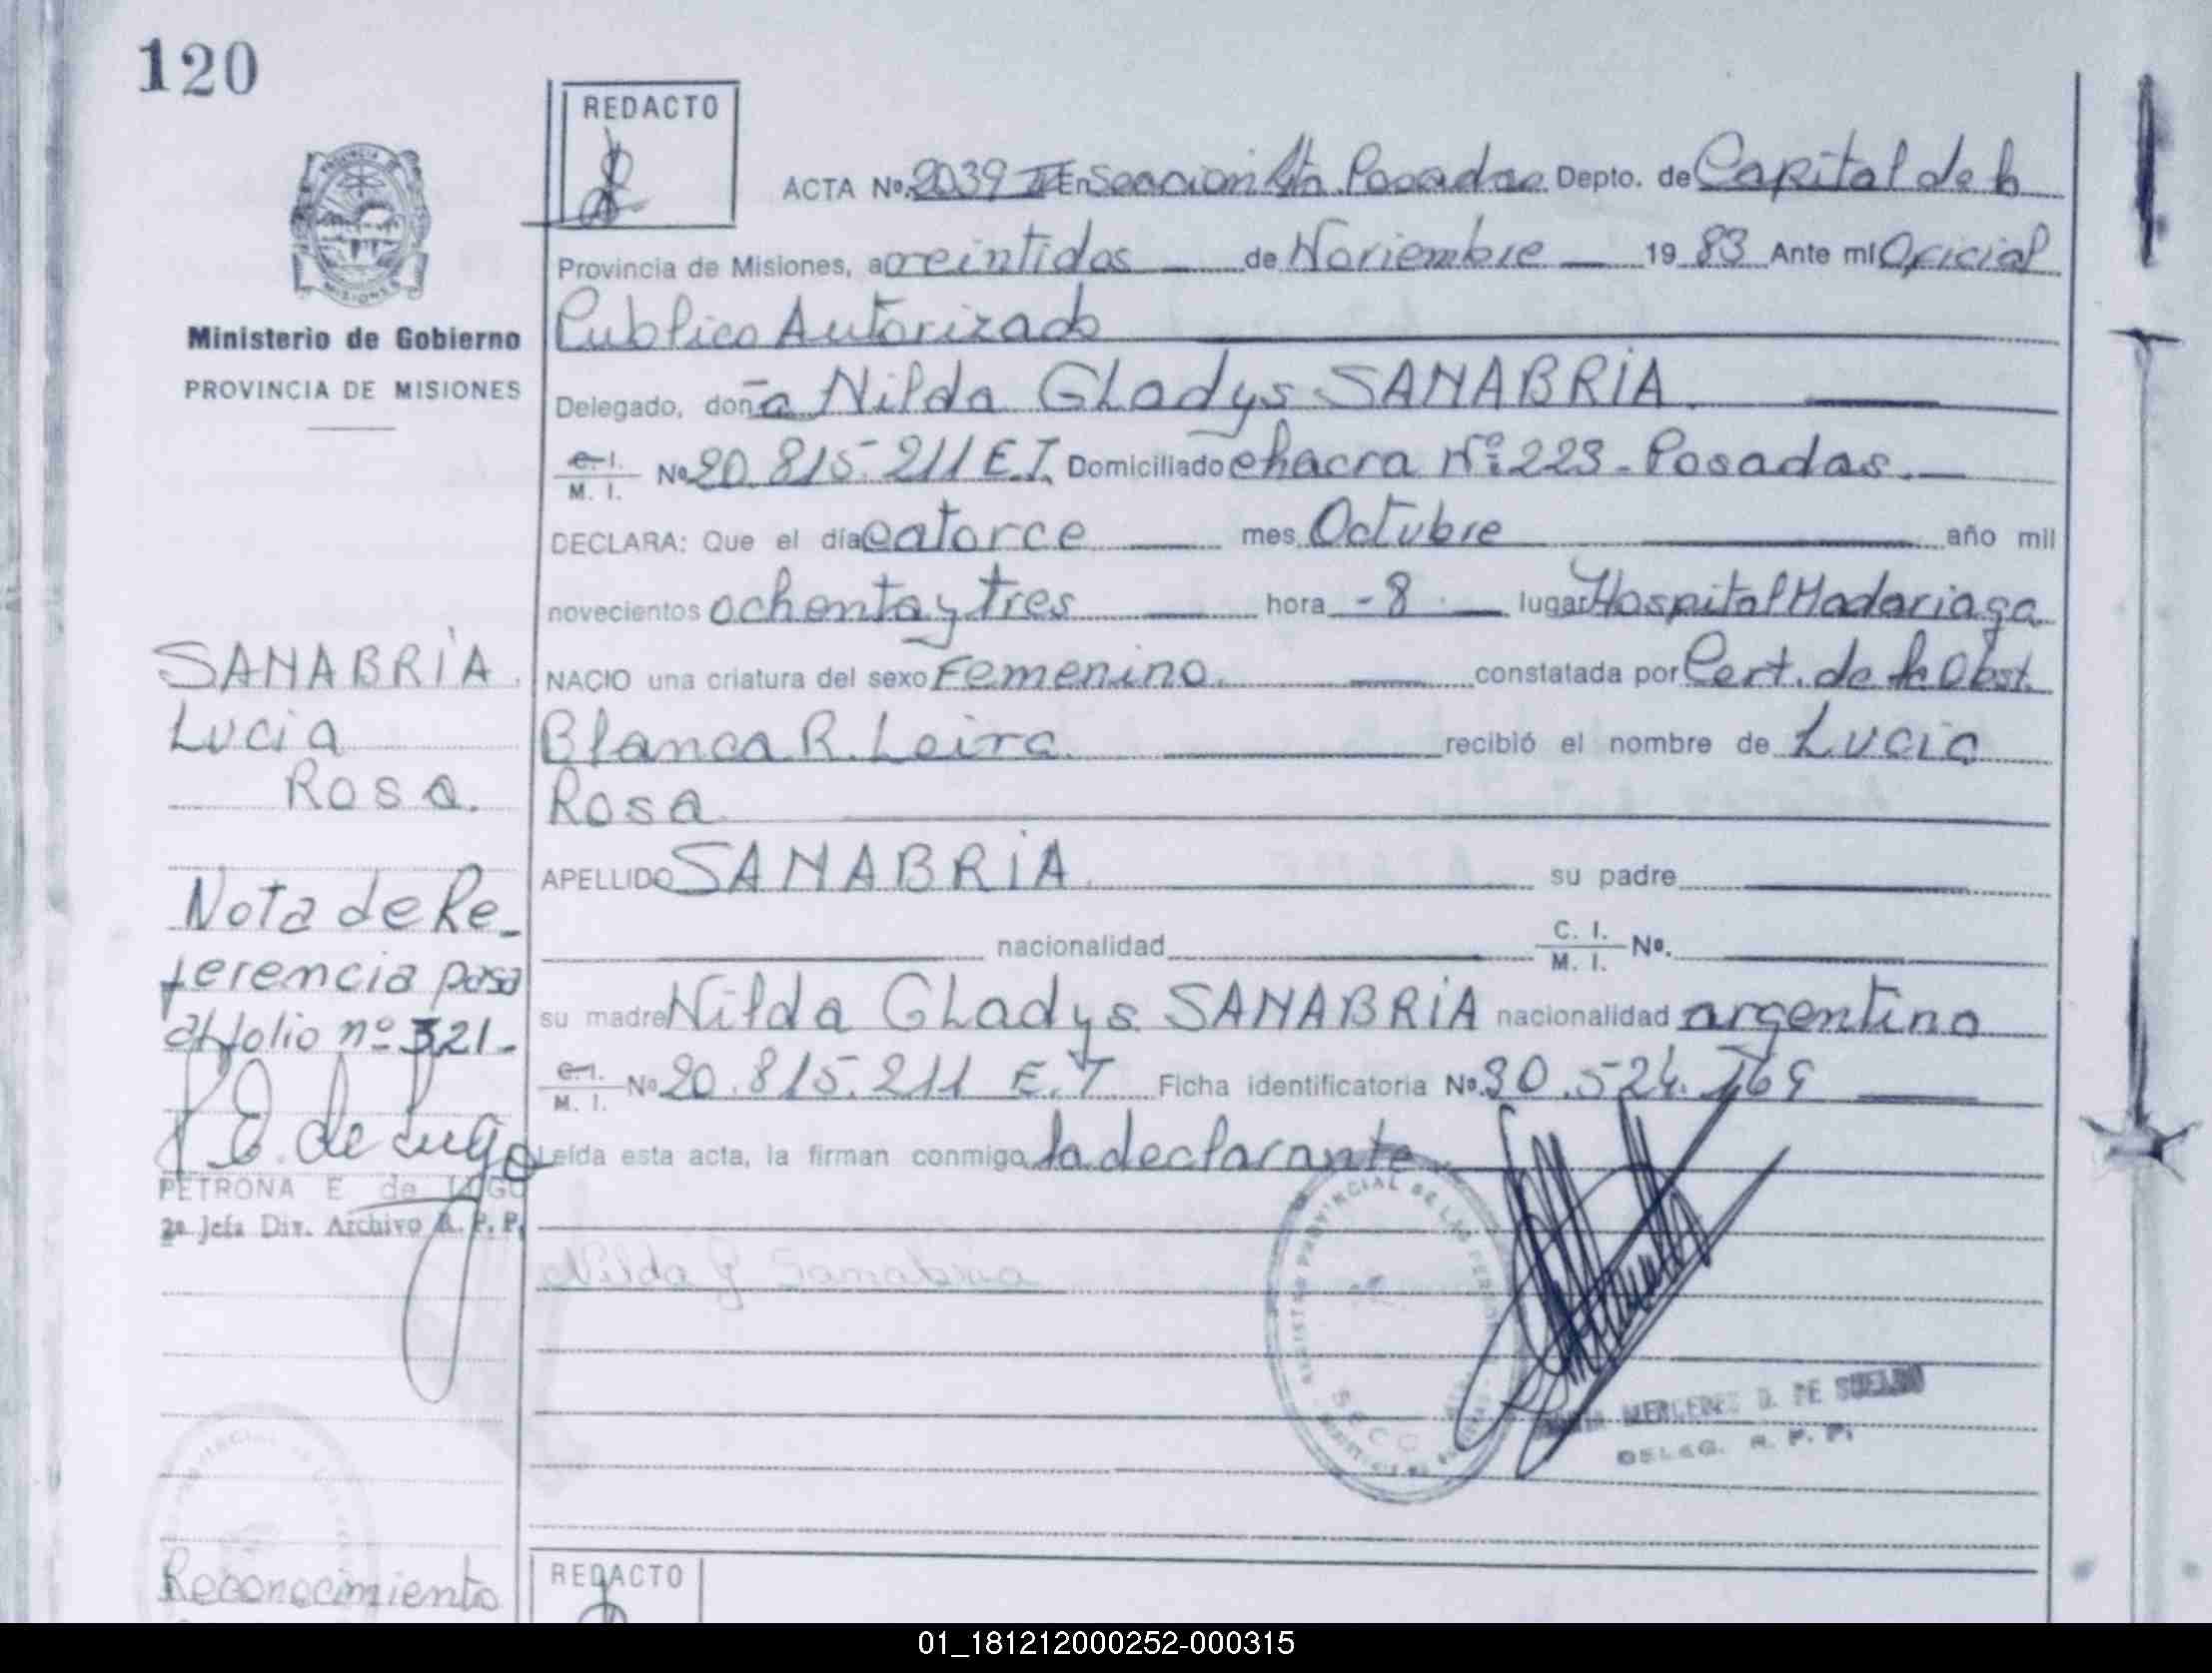 120
REDACTO
ACTA Nº. 2039 II En Seccion 4ta. Posadas Depto. de Capital de la
Provincia de Misiones, a veintidos de Noviembre 19 83 Ante mi Oficial
Publico Autorizado
Ministerio de Gobierno
PROVINCIA DE MISIONES
Delegado, doña Nilda Gladys SANABRIA
C. I. M. I. Nº 20.815.211 E.T. Domiciliado chacra Nº 223 - Posadas.
DECLARA: Que el día catorce mes Octubre año mil
novecientos ochenta y tres hora - 8 lugar Hospital Madariaga
NACIO una criatura del sexo Femenino. constatada por Cert. de la Obst.
Blanca R. Leira. recibió el nombre de Lucia
Rosa
APELLIDO SANABRIA. su padre
nacionalidad C. I. M. I. Nº.
su madre Nilda Gladys SANABRIA nacionalidad argentina
C. I. M. I. Nº 20.815.211 E.T. Ficha identificatoria Nº. 30.524.169
Leída esta acta, la firman conmigo la declarante
Nilda G Sanabria
SANABRIA.
Lucia
Rosa.
Nota de Re-
ferencia pasa
al folio nº 321-
P. E. de Lugo
PETRONA E de LUGO
2ª Jefa Div. Archivo R. P. P.
REGISTRO PROVINCIAL DE LAS PERSONAS
MERCEDES D. DE SUELDO
DELEG. R. P. P.
Reconocimiento
REDACTO
01_181212000252-000315